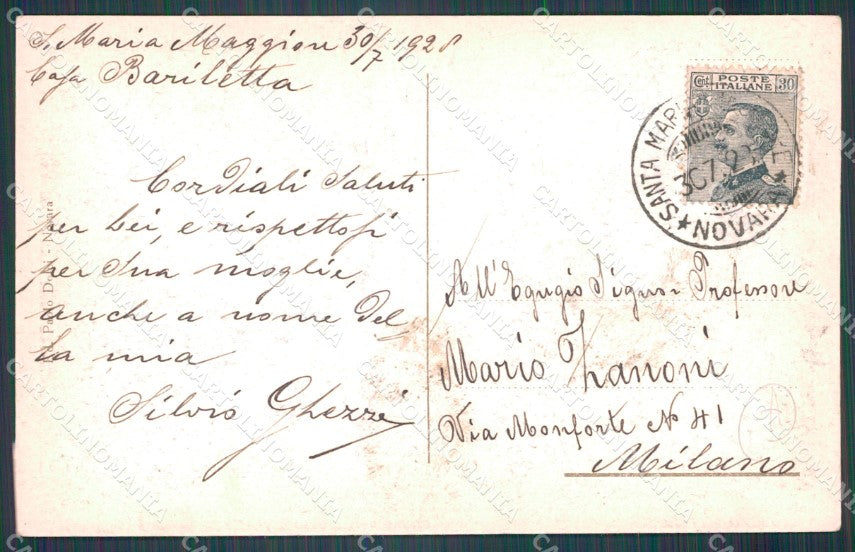 S. Maria Maggiore 30/7 1928
Casa Bariletta
Cordiali saluti
per Lei, e rispettosi
per Sua moglie,
anche a nome del
la mia
Silvio Ghezzi
- Novara
Cent. POSTE 30
ITALIANE
SANTA MARIA
30.7
NOVARA
All'Egregio Signor Professore
Mario Zanoni
Via Monforte N 41
Milano
CARTOLINOMANIA